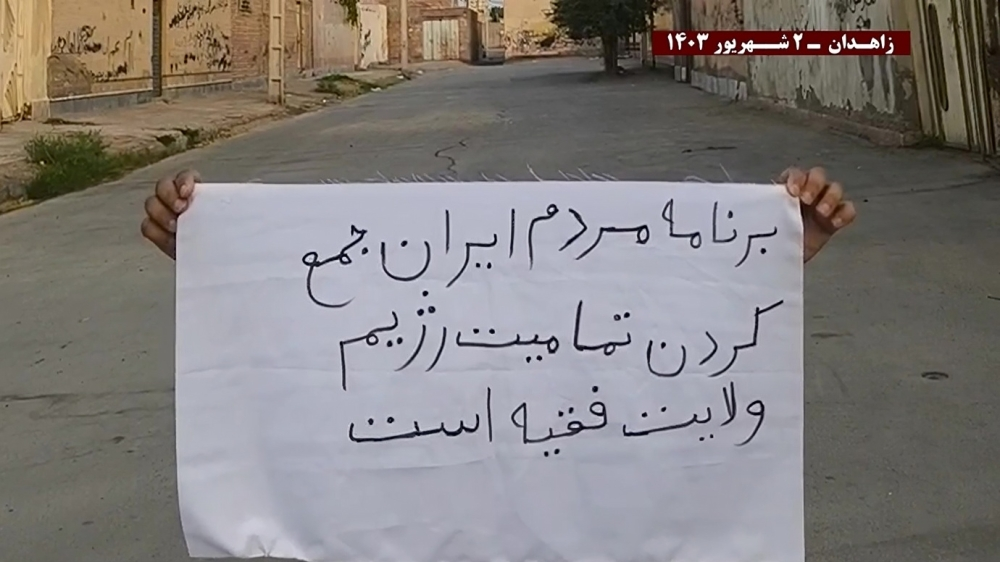 زاهدان - ۲ شهریور ۱۴۰۳
برنامه مردم ایران جمع
کردن تمامیت رژیم
ولایت فقیه است